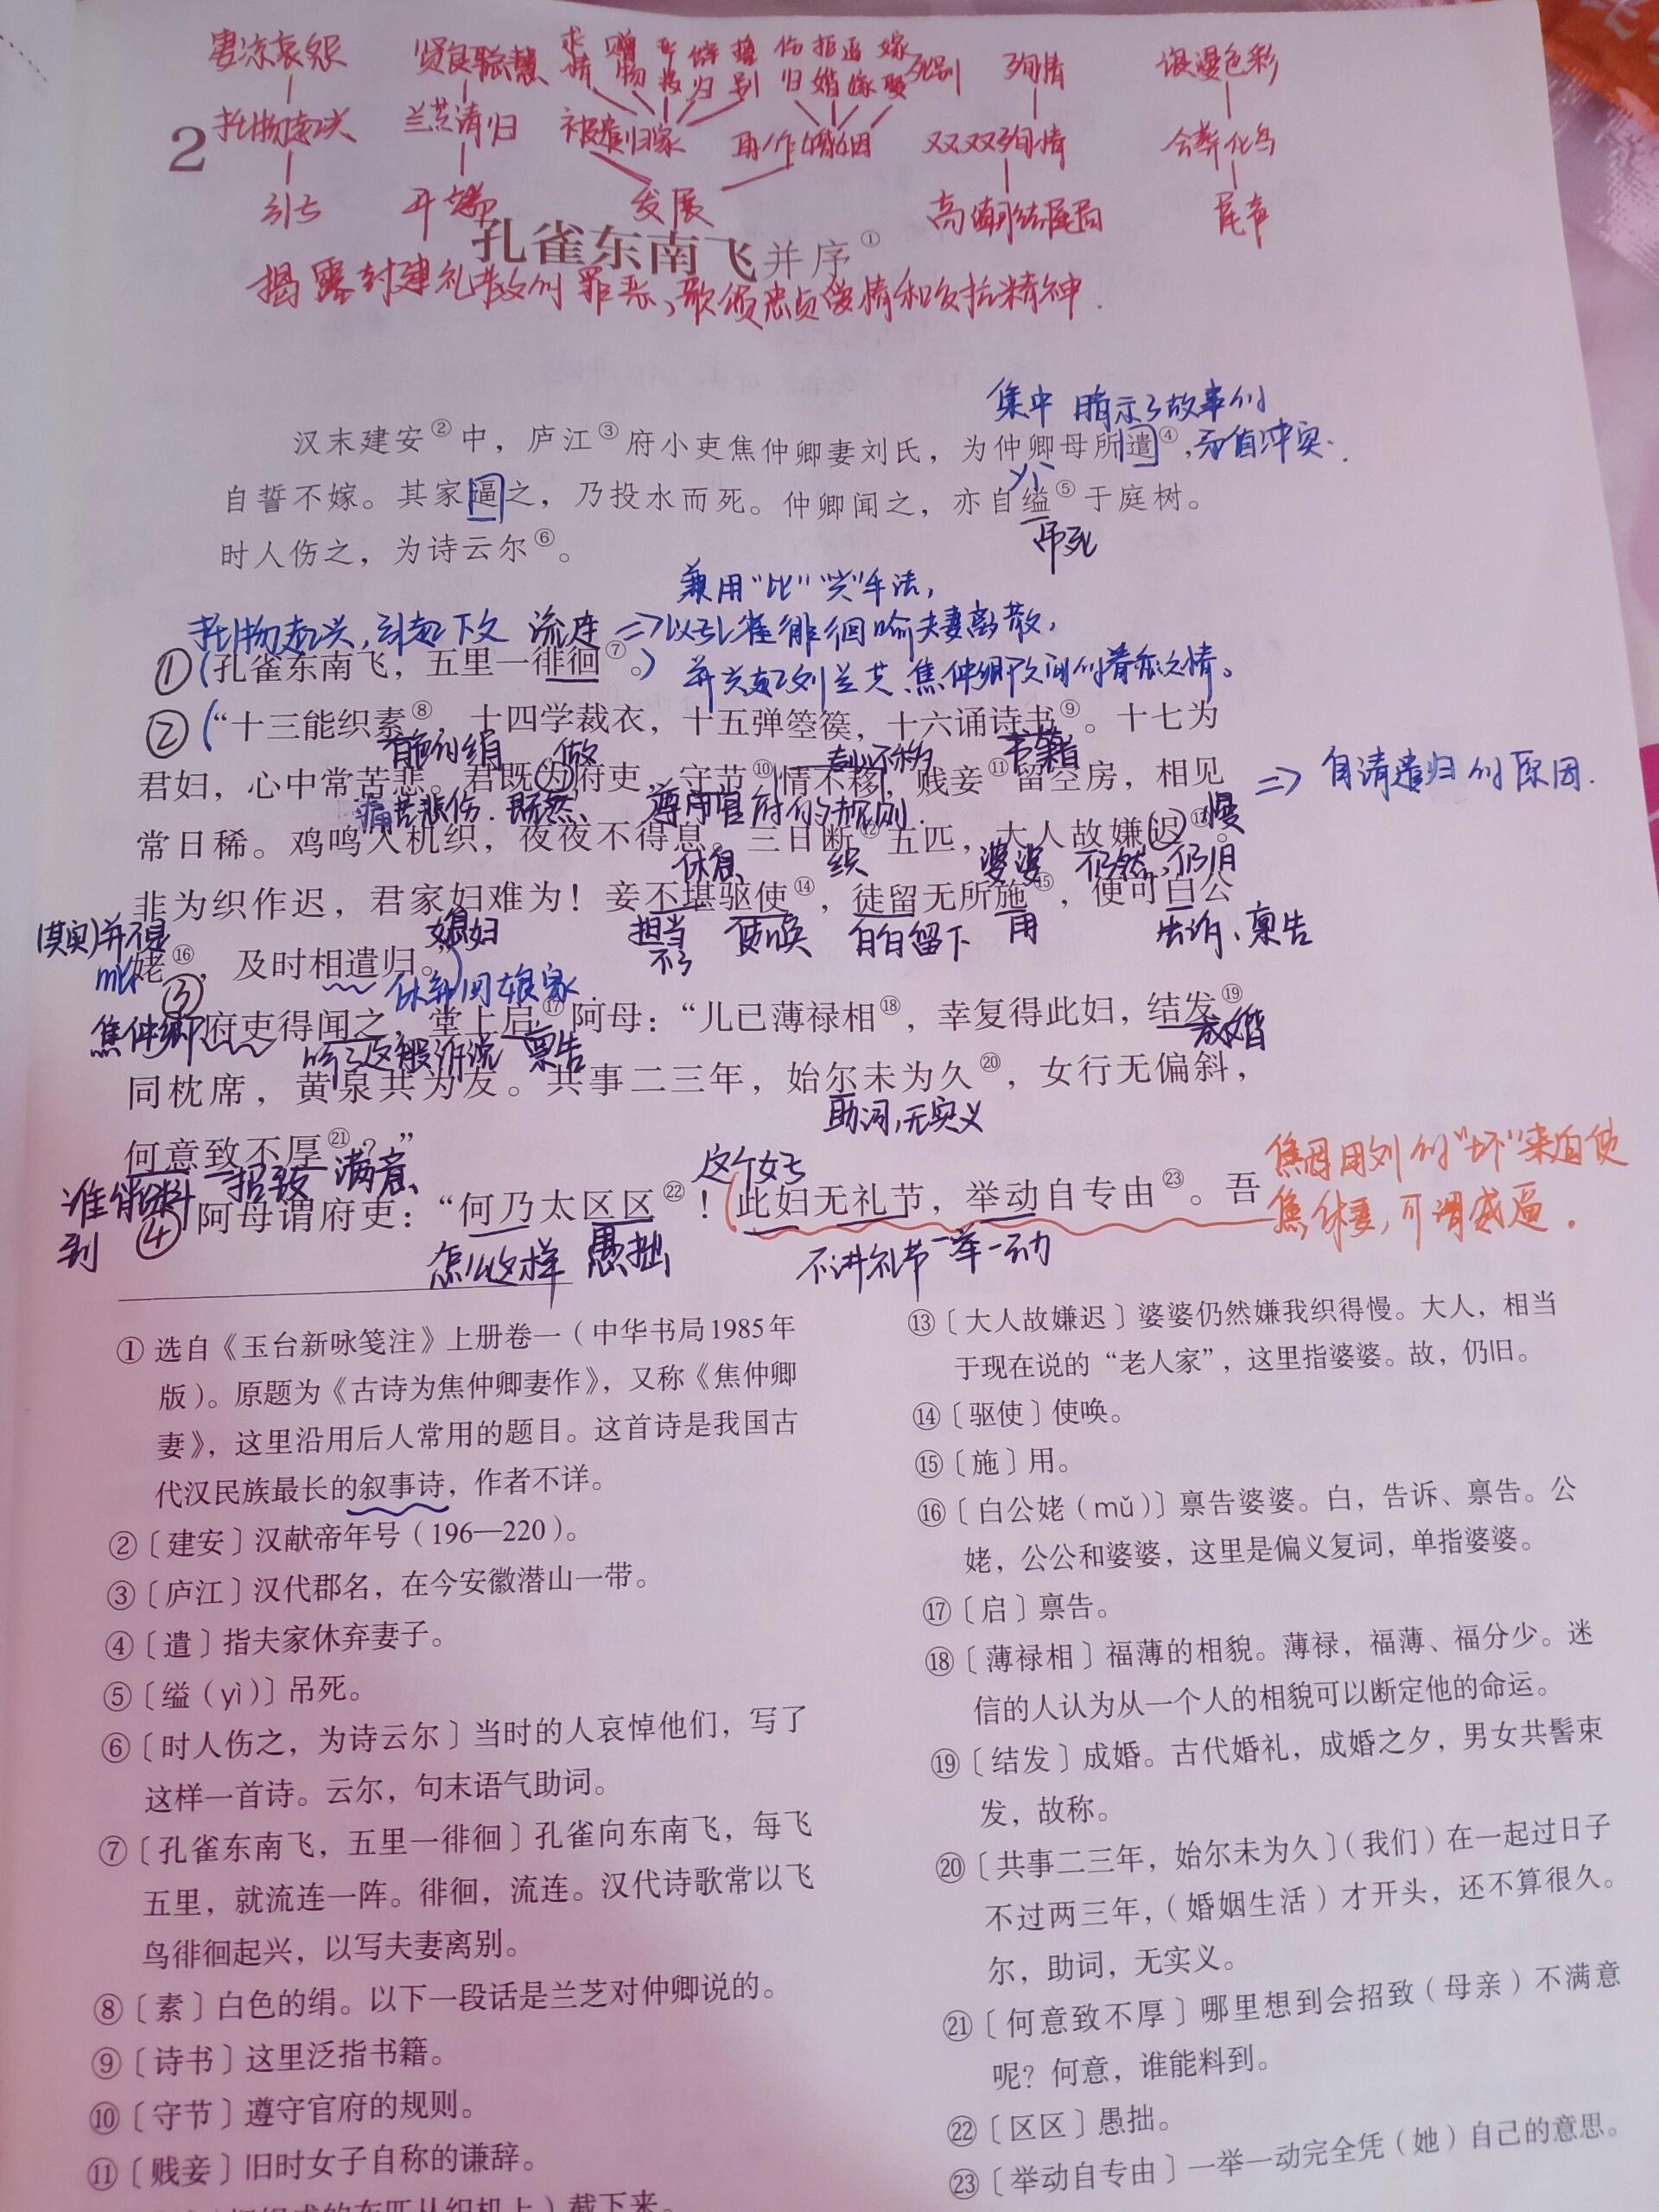 凄凉哀怨 贤良聪慧 求情 赠物 归 别 归 拒婚 逼嫁 嫁娶 死别 殉情 浪漫色彩
托物起兴 兰芝请归 被遣归家 再作婚姻 双双殉情 合葬化鸟
2
引子 开端 发展 高潮结尾局 尾声
孔雀东南飞并序①
揭露封建礼教的罪恶、歌颂忠贞爱情和反抗精神.
集中 暗示了故事的
汉末建安②中，庐江③府小吏焦仲卿妻刘氏，为仲卿母所遣④，矛盾冲突.
自誓不嫁。其家逼之，乃投水而死。仲卿闻之，亦自缢⑤于庭树。
yì
吊死
时人伤之，为诗云尔⑥。
兼用“比”“兴”手法，
托物起兴，引起下文 流连 ⇒以孔雀徘徊喻夫妻离散，
①(孔雀东南飞，五里一徘徊⑦。)
并兴起刘兰芝、焦仲卿之间的眷恋之情。
②(“十三能织素⑧，十四学裁衣，十五弹箜篌，十六诵诗书⑨。十七为
白色的绢 做 书籍
君妇，心中常苦悲。君既为府吏，守节⑩情不移，贱妾⑪留空房，相见 ⇒ 自请遣归的原因.
痛苦悲伤. 既然 遵守官府的规则. 慢
常日稀。鸡鸣入机织，夜夜不得息。三日断⑫五匹，大人故嫌迟⑬。
休息 织 婆婆 仍然、仍旧
非为织作迟，君家妇难为！妾不堪驱使⑭，徒留无所施⑮，便可白公
(其实)并不是 媳妇 担当不了 使唤 白白留下 用 告诉、禀告
姥⑯，及时相遣归。”)
mǔ 休弃回娘家.
③府吏得闻之，堂上启⑰阿母：“儿已薄禄相⑱，幸复得此妇，结发⑲
焦仲卿 听了这般诉说 禀告 成婚
同枕席，黄泉共为友。共事二三年，始尔未为久⑳，女行无偏斜，
助词，无实义
何意致不厚㉑？”
谁能料到 招致 满意 这个妇
④阿母谓府吏：“何乃太区区㉒！(此妇无礼节，举动自专由㉓。吾
焦母用刘的“坏”来迫使
焦休妻，可谓威逼.
怎么这样 愚拙 不讲礼节 一举一动
① 选自《玉台新咏笺注》上册卷一（中华书局1985年
版）。原题为《古诗为焦仲卿妻作》，又称《焦仲卿
妻》，这里沿用后人常用的题目。这首诗是我国古
代汉民族最长的叙事诗，作者不详。
②〔建安〕汉献帝年号（196—220）。
③〔庐江〕汉代郡名，在今安徽潜山一带。
④〔遣〕指夫家休弃妻子。
⑤〔缢（yì）〕吊死。
⑥〔时人伤之，为诗云尔〕当时的人哀悼他们，写了
这样一首诗。云尔，句末语气助词。
⑦〔孔雀东南飞，五里一徘徊〕孔雀向东南飞，每飞
五里，就流连一阵。徘徊，流连。汉代诗歌常以飞
鸟徘徊起兴，以写夫妻离别。
⑧〔素〕白色的绢。以下一段话是兰芝对仲卿说的。
⑨〔诗书〕这里泛指书籍。
⑩〔守节〕遵守官府的规则。
⑪〔贱妾〕旧时女子自称的谦辞。
⑬〔大人故嫌迟〕婆婆仍然嫌我织得慢。大人，相当
于现在说的“老人家”，这里指婆婆。故，仍旧。
⑭〔驱使〕使唤。
⑮〔施〕用。
⑯〔白公姥（mǔ）〕禀告婆婆。白，告诉、禀告。公
姥，公公和婆婆，这里是偏义复词，单指婆婆。
⑰〔启〕禀告。
⑱〔薄禄相〕福薄的相貌。薄禄，福薄、福分少。迷
信的人认为从一个人的相貌可以断定他的命运。
⑲〔结发〕成婚。古代婚礼，成婚之夕，男女共髻束
发，故称。
⑳〔共事二三年，始尔未为久〕（我们）在一起过日子
不过两三年，（婚姻生活）才开头，还不算很久。
尔，助词，无实义。
㉑〔何意致不厚〕哪里想到会招致（母亲）不满意
呢？何意，谁能料到。
㉒〔区区〕愚拙。
㉓〔举动自专由〕一举一动完全凭（她）自己的意思。